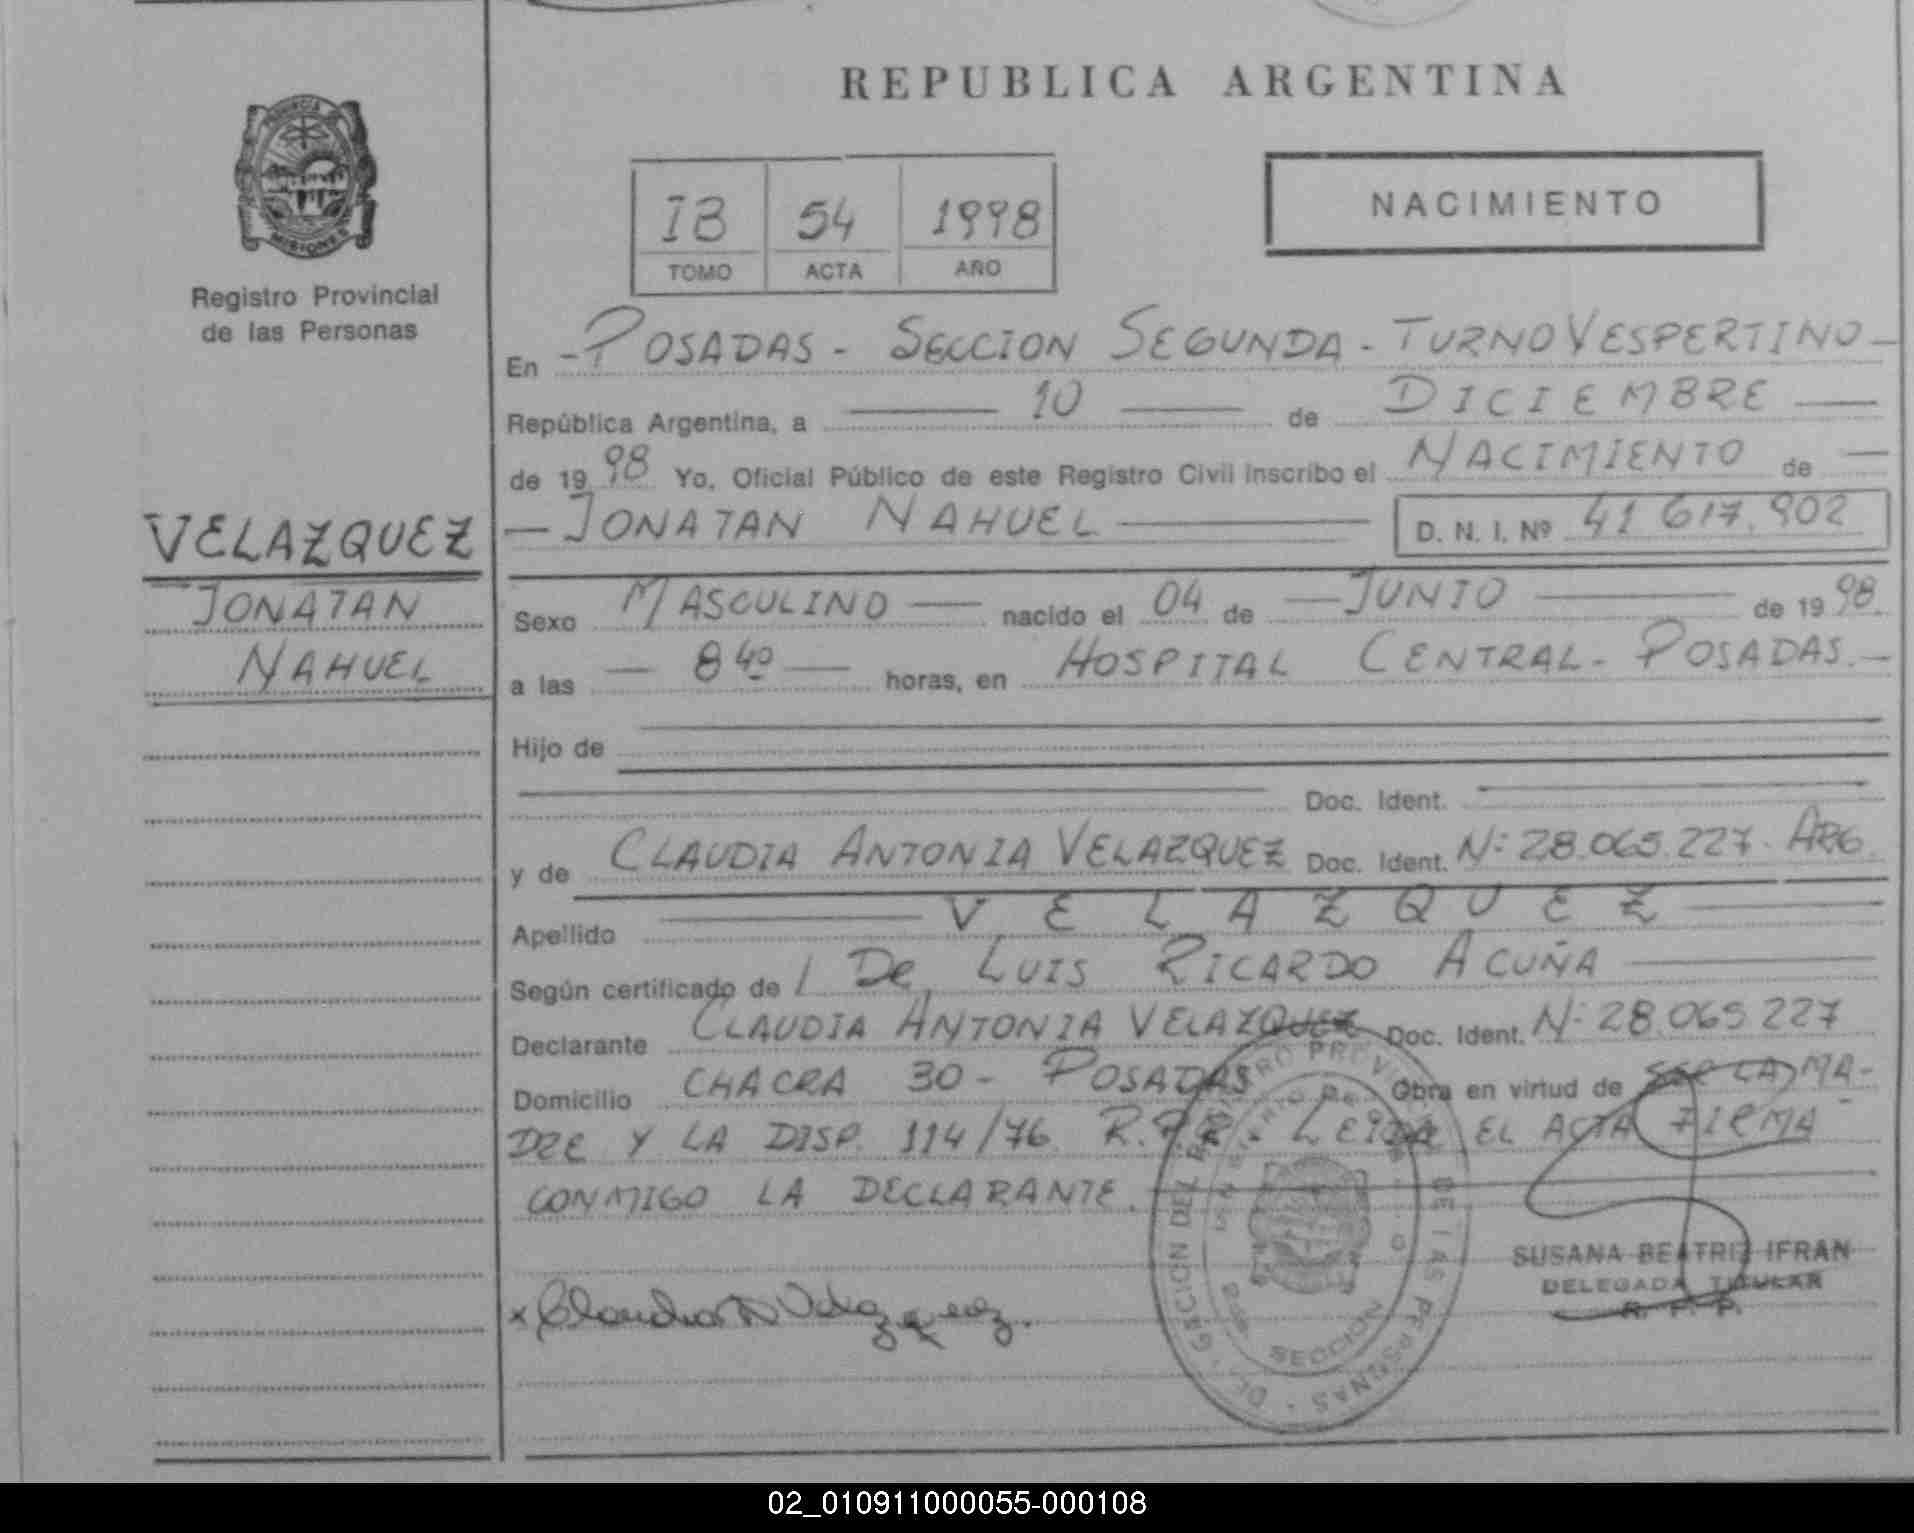 REPUBLICA ARGENTINA
PROVINCIA DE MISIONES
Registro Provincial
de las Personas
IB 54 1998
TOMO ACTA AÑO
NACIMIENTO
En - POSADAS - SECCION SEGUNDA - TURNO VESPERTINO -
República Argentina, a 10 de DICIEMBRE
de 1998 Yo, Oficial Público de este Registro Civil inscribo el NACIMIENTO de
JONATAN NAHUEL D. N. I. Nº 41 617.902
VELAZQUEZ
JONATAN
NAHUEL
Sexo MASCULINO nacido el 04 de JUNIO de 1998
a las 8 40 horas, en HOSPITAL CENTRAL - POSADAS.-
Hijo de
Doc. Ident.
y de CLAUDIA ANTONIA VELAZQUEZ Doc. Ident. Nº 28.065.227. ARG.
Apellido VELAZQUEZ
Según certificado de / De LUIS RICARDO ACUÑA
Declarante CLAUDIA ANTONIA VELAZQUEZ Doc. Ident. Nº 28.065 227
Domicilio CHACRA 30 - POSADAS Obra en virtud de SER LA MA-
DRE Y LA DISP. 114/76 R.P.P. LEIDA EL ACTA FIRMA
CONMIGO LA DECLARANTE.
DELEGACION DEL REGISTRO PROVINCIAL DE LAS PERSONAS
SECCION
x Claudia A Velazquez.
SUSANA BEATRIZ IFRAN
DELEGADA TITULAR
R. P. P.
02_010911000055-000108